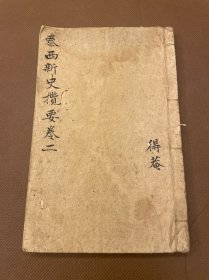 泰西新史攬要卷二
得菴